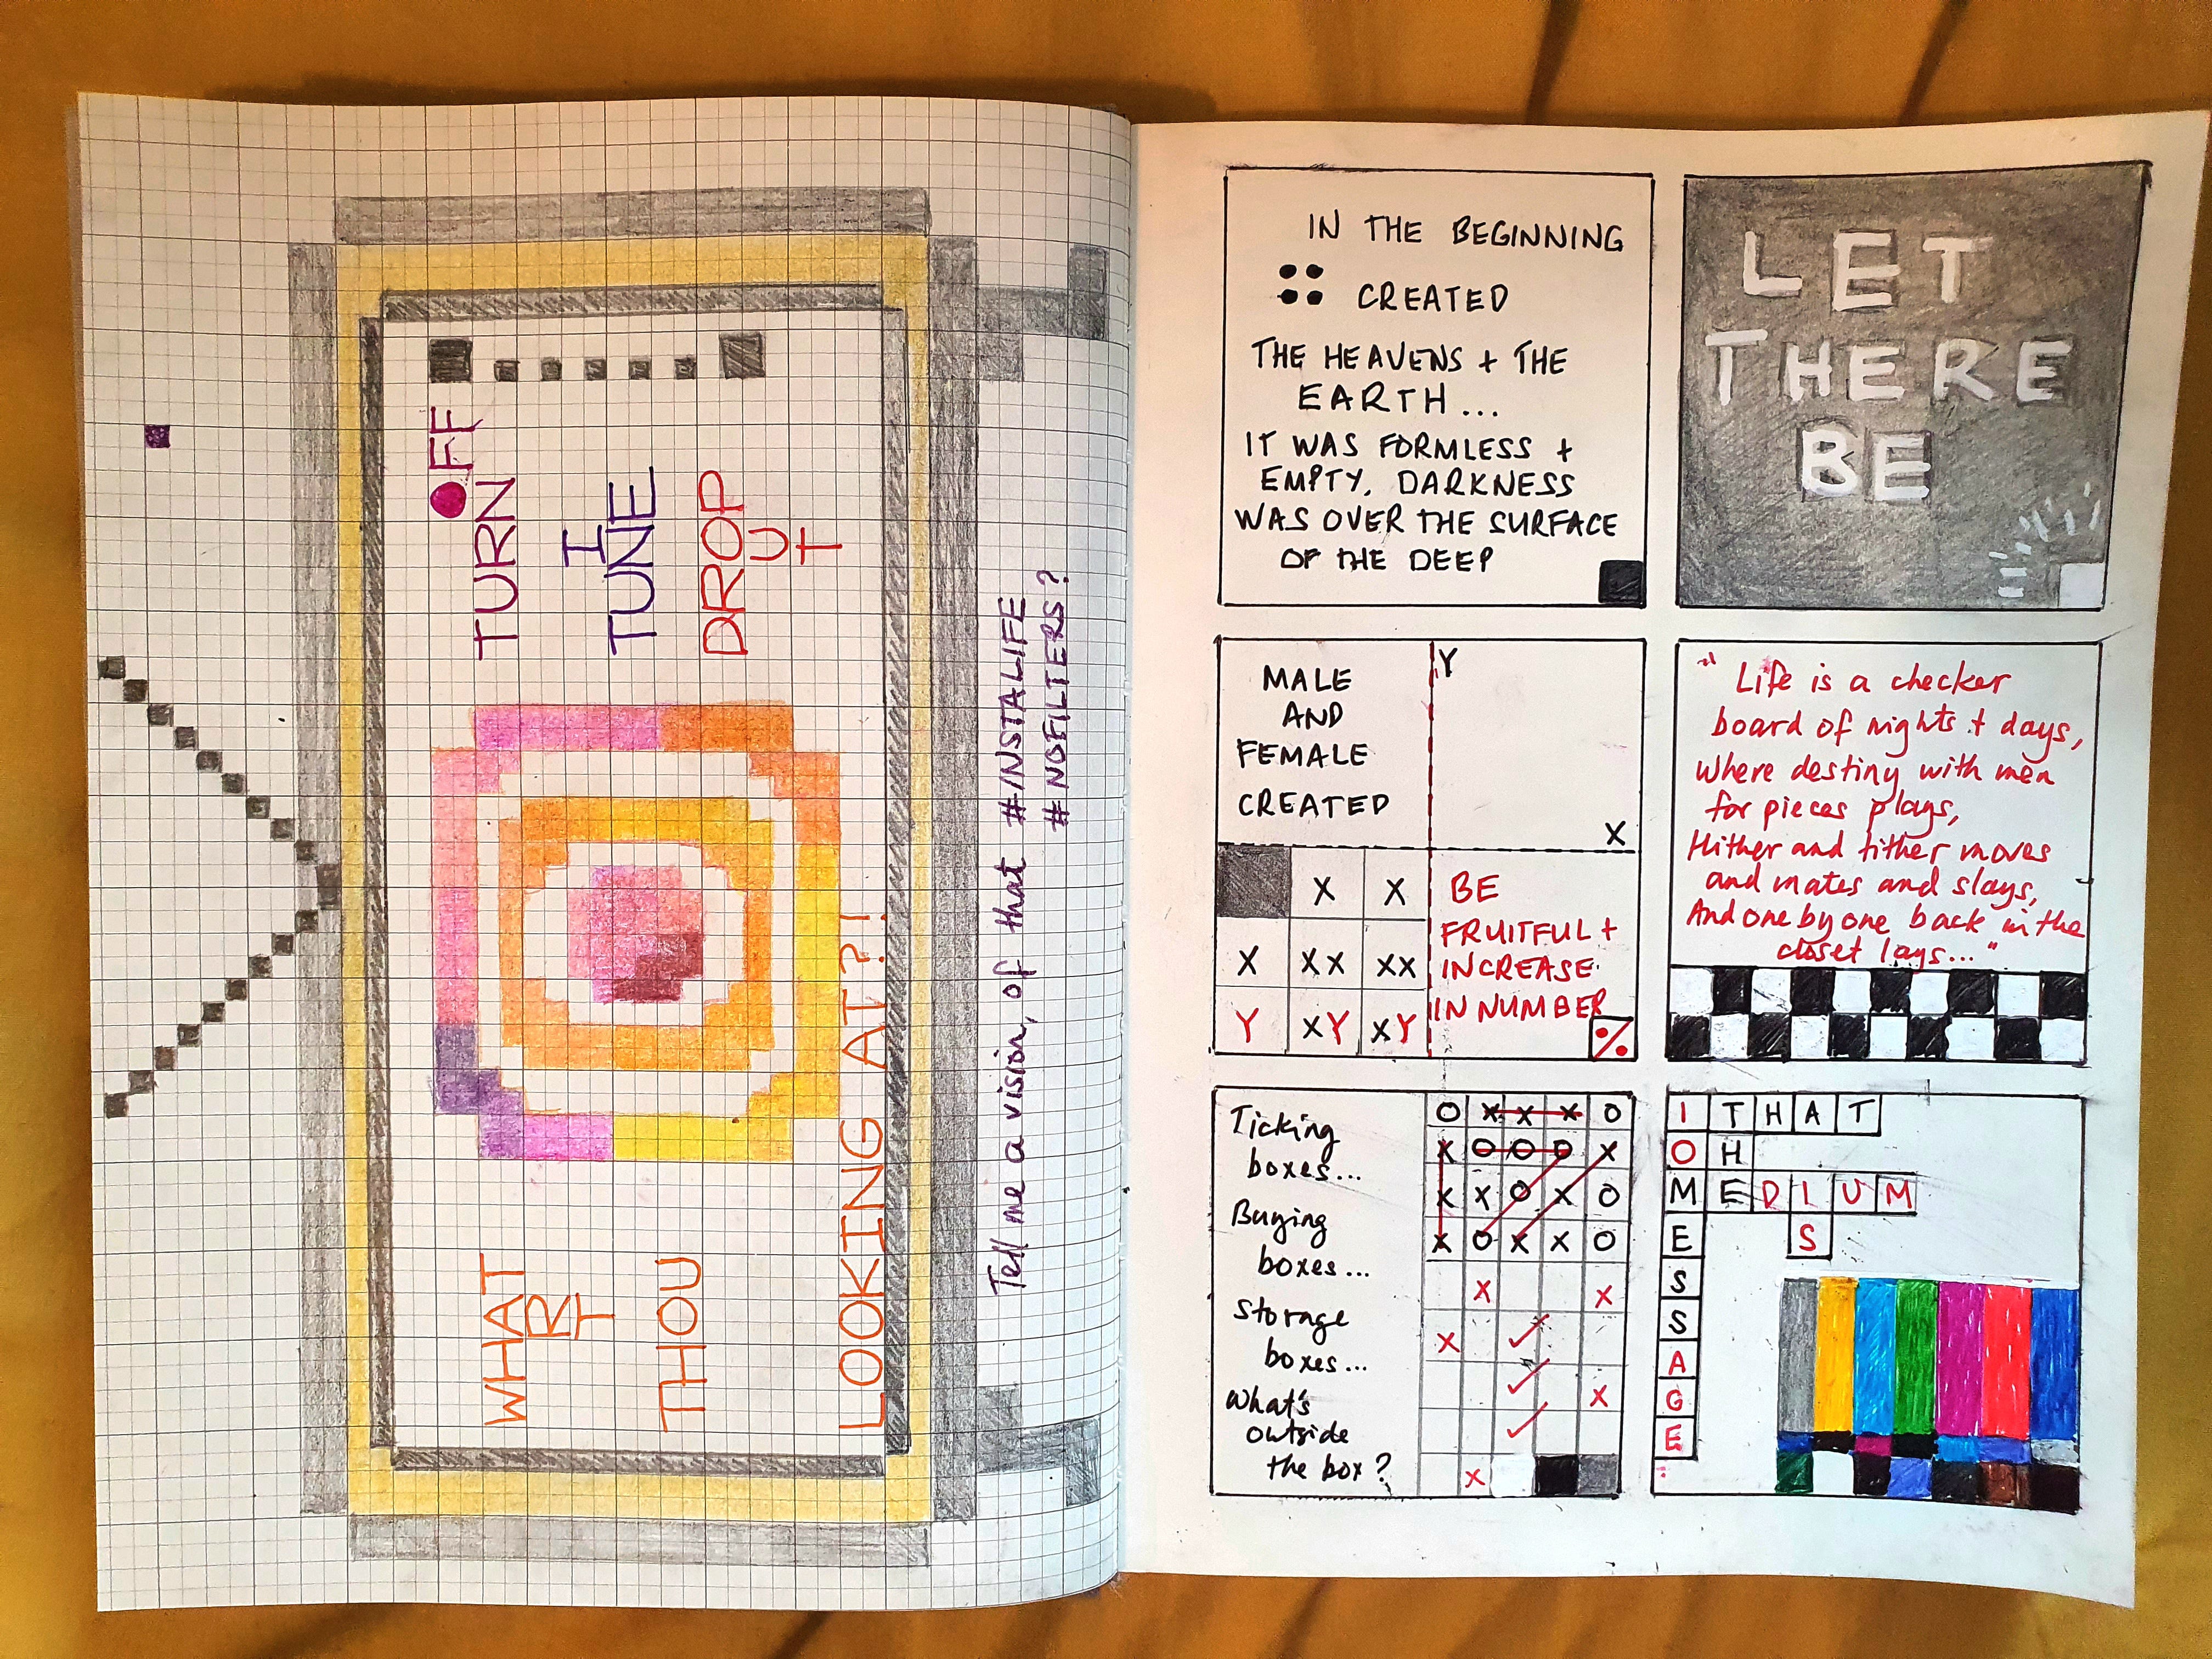 WHAT
R
T
THOU
LOOKING AT?!
●FF
TURN
I
TUNE
DROP
U
T
Tell me a vision, of that #INSTALIFE
#NOFILTERS?
IN THE BEGINNING
:: CREATED
THE HEAVENS + THE
EARTH...
IT WAS FORMLESS +
EMPTY, DARKNESS
WAS OVER THE SURFACE
OF THE DEEP
LET
THERE
BE
MALE
AND
FEMALE
CREATED
Y
X
X X
X XX XX
Y XY XY
BE
FRUITFUL +
INCREASE
IN NUMBER
%
"Life is a checker
board of nights + days,
Where destiny with men
for pieces plays,
Hither and tither moves
and mates and slays,
And one by one back in the
closet lays..."
Ticking
boxes...
Buying
boxes...
Storage
boxes...
What's
outside
the box?
O X X X O
X O O O X
X X O X O
X O X X O
X X
X ✓
✓ X
✓
X
I THAT
O H
MEDIUM
E S
S
S
A
G
E